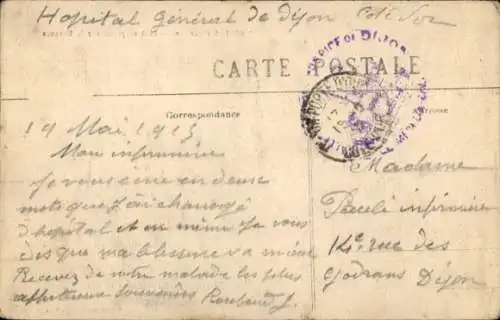 Hopital Général de Dijon Cote d'or
HOSPICE DE DIJON
CARTE POSTALE
Correspondance
Adresse
19 Mai 1915
Mon infirmière
Je vous écrie en deux
mots que J'ai changé
d'hopital et en même Je vous
dis que ma blessure va mieux
Recevez de votre malade les plus
affectueux souvenirs
Madame
Pauli infirmière
14e rue des
Godrans Dijon